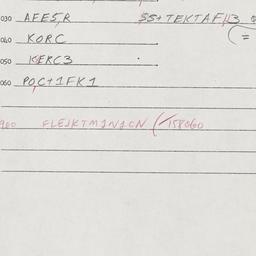 030 AFE5,R SS+TEKTAF43
040 KORC (=
050 KERC3
060 POC+1FK1
960 FLEJKTM1N1CN (158060